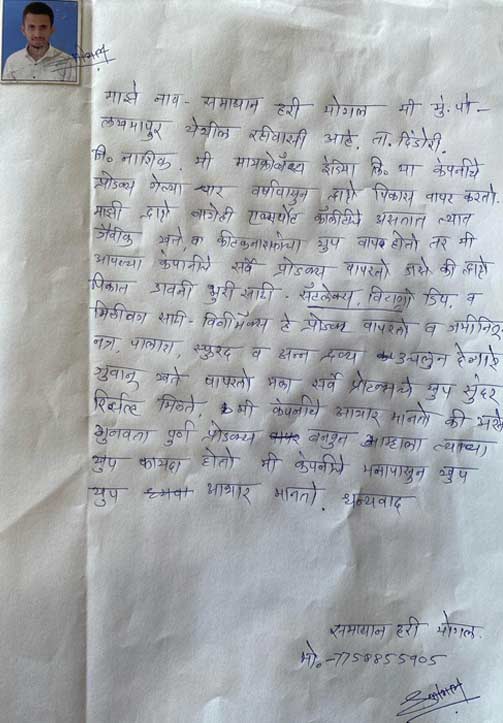 माझे नाव - समाधान हरी मोगल मी मु. पो -
लखमापुर येथील रहीवासी आहे. ता. दिंडोरी.
जि. नाशिक. मी मायक्रोबॅक्स इंडिया लि. या कंपनीचे
प्रोडक्स गेल्या चार वर्षापासुन द्राक्षे पिकास वापर करतो.
माझी द्राक्षे बागेही एक्सपोर्ट कॉलीटीचे असतात त्यात
जैवीक खते व कीटकनाशकांचा खुप वापर होतो तर मी
आपल्या कंपनीचे सर्वे प्रोडक्स वापरतो जसे की द्राक्षे
पिकात डावनी भुरी साठी - सॅटलेक्स, डिप, व
मिलीबग साठी - हे प्रोडक्स वापरतो व जमीनितुन
नत्र, पालाश, स्फुरद व अन्न द्रव्य उचलुन देणारे
जिवाणू खते वापरतो मला सर्वे खुप सुंदर
मिळते, मी कंपनीचे आभार मानतो की असे
गुणवता पुर्ण प्रोडक्स बनवुन आम्हाला त्याचा
खुप फायदा होतो मी कंपनीचे मनापासुन खुप
खुप आभार मानतो. धन्यवाद
समाधान हरी मोगल.
मो.-7758855905